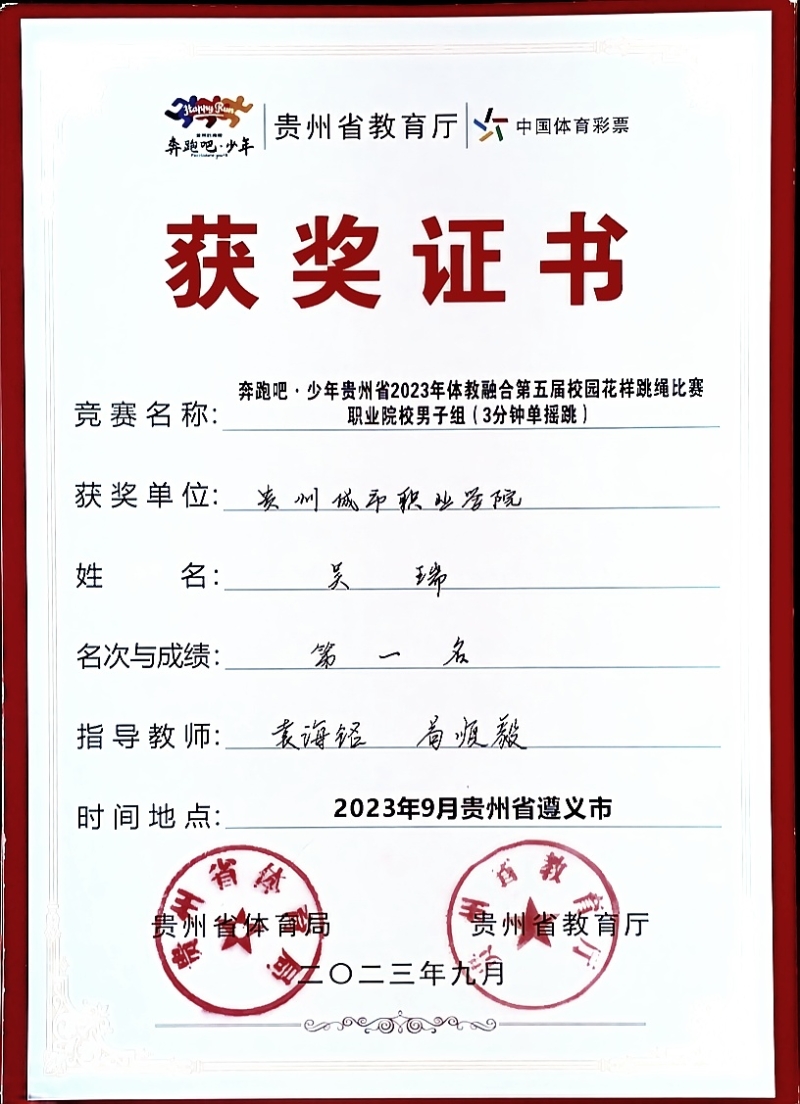 Happy Run
奔跑吧·少年
贵州省教育厅
中国体育彩票
获奖证书
竞赛名称：
奔跑吧·少年贵州省2023年体教融合第五届校园花样跳绳比赛
职业院校男子组（3分钟单摇跳）
获奖单位：贵州城市职业学院
姓名：吴瑞
名次与成绩：第一名
指导教师：袁海铭 苟顺毅
时间地点：2023年9月贵州省遵义市
贵州省体育局
贵州省教育厅
贵州省体育局 贵州省教育厅
二〇二三年九月